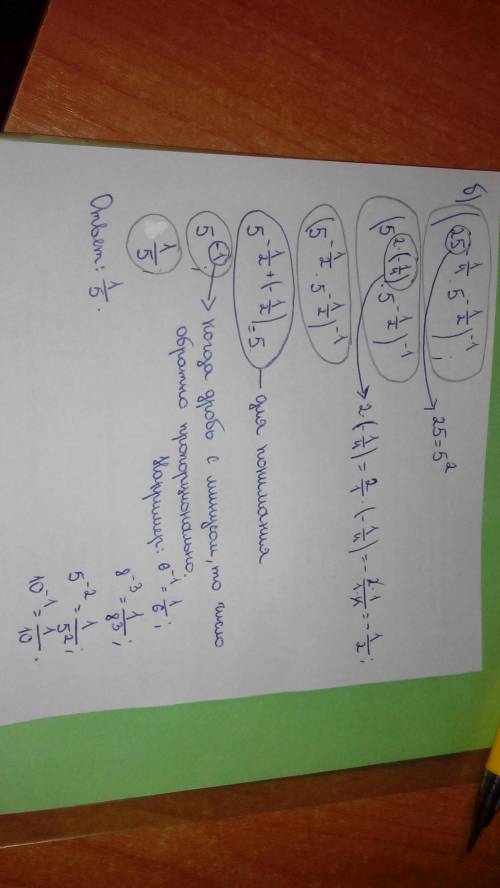 б) (25^{-\frac{1}{4}} · 5^{-\frac{1}{2}})^{-1};
25 = 5^2
(5^{2·(\frac{1}{4})} · 5^{-\frac{1}{2}})^{-1}
2·(-\frac{1}{4}) = \frac{2}{1}·(-\frac{1}{4}) = -\frac{2·1}{1·4} = -\frac{1}{2};
(5^{-\frac{1}{2}} · 5^{-\frac{1}{2}})^{-1}
5^{-\frac{1}{2}+(-\frac{1}{2})} = 5 — для понимания
5^{-1}; Когда дробь с минусом, то число
обратно пропорционально.
\frac{1}{5}; Например: 6^{-1} = \frac{1}{6};
8^{-3} = \frac{1}{8^3};
5^{-2} = \frac{1}{5^2};
10^{-1} = \frac{1}{10};
Ответ: \frac{1}{5}.